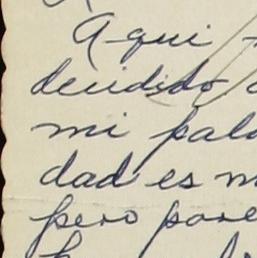 Aqui
decidido
mi pala
dad es m
pero pare